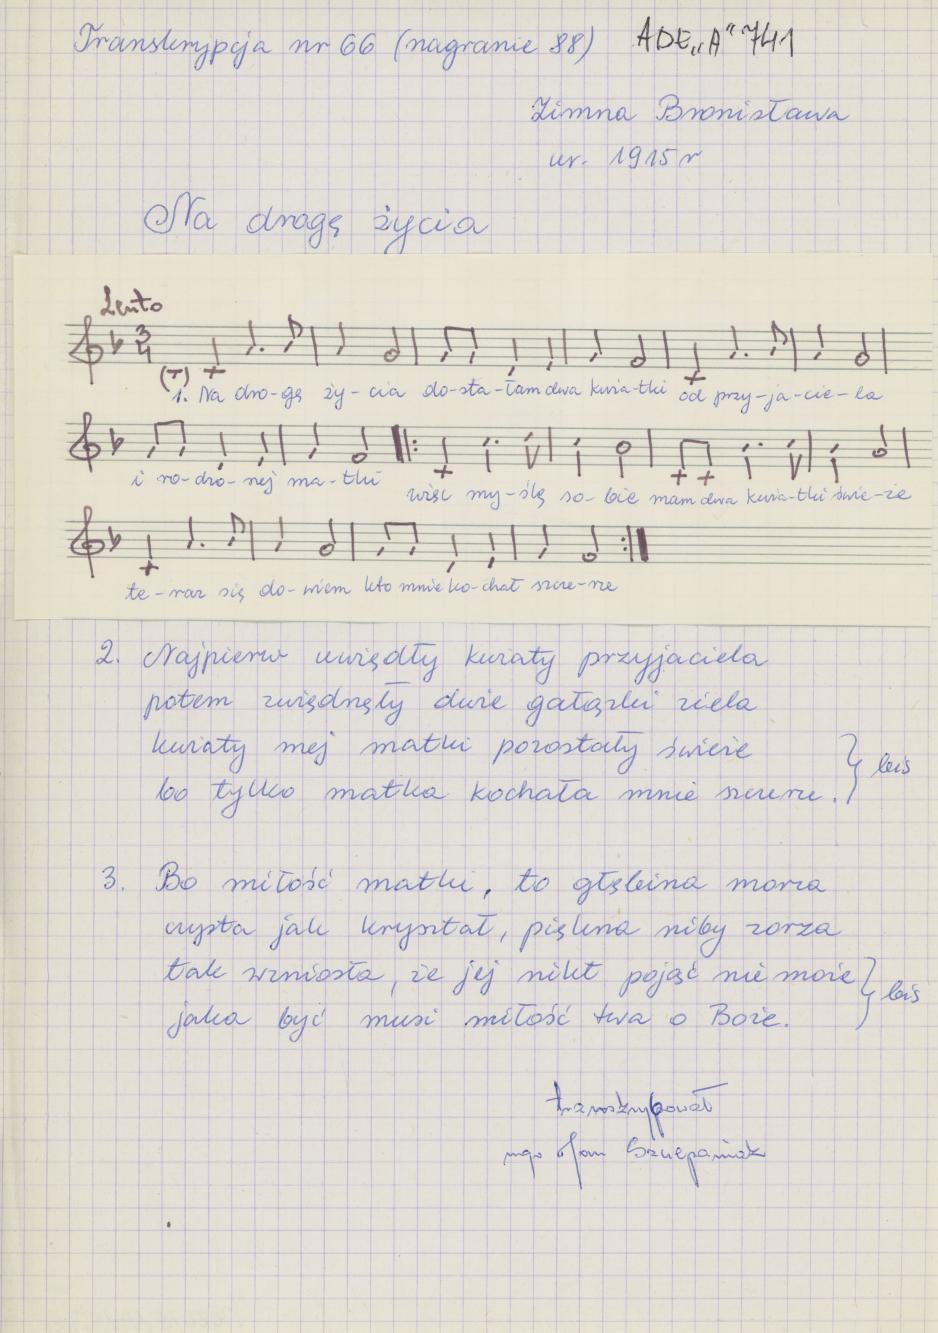 Transkrypcja nr 66 (nagranie 88) ADE „A" 741
Zimna Bronisława
ur. 1915 r
Na drogę życia
Lento
3
4
(T)
1. Na dro-gę ży-cia do-sta-łam dwa kwia-tki od przy-ja-cie-la
i ro-dzo-nej ma-tki więc my-ślę so-bie mam dwa kwia-tki świe-że
te-raz się do-wiem kto mnie ko-chał szcze-rze
2. Najpierw uwiędły kwiaty przyjaciela
potem zwiędnęły dwie gałązki ziela
kwiaty mej matki pozostały świeże
bo tylko matka kochała mnie szczerze. } bis
3. Bo miłość matki, to głębina morza
czysta jak kryształ, piękna niby zorza
tak wzniosła, że jej nikt pojąć nie może
jaka być musi miłość twa o Boże. } bis
transkrybował
mgr Jan Szczepaniak